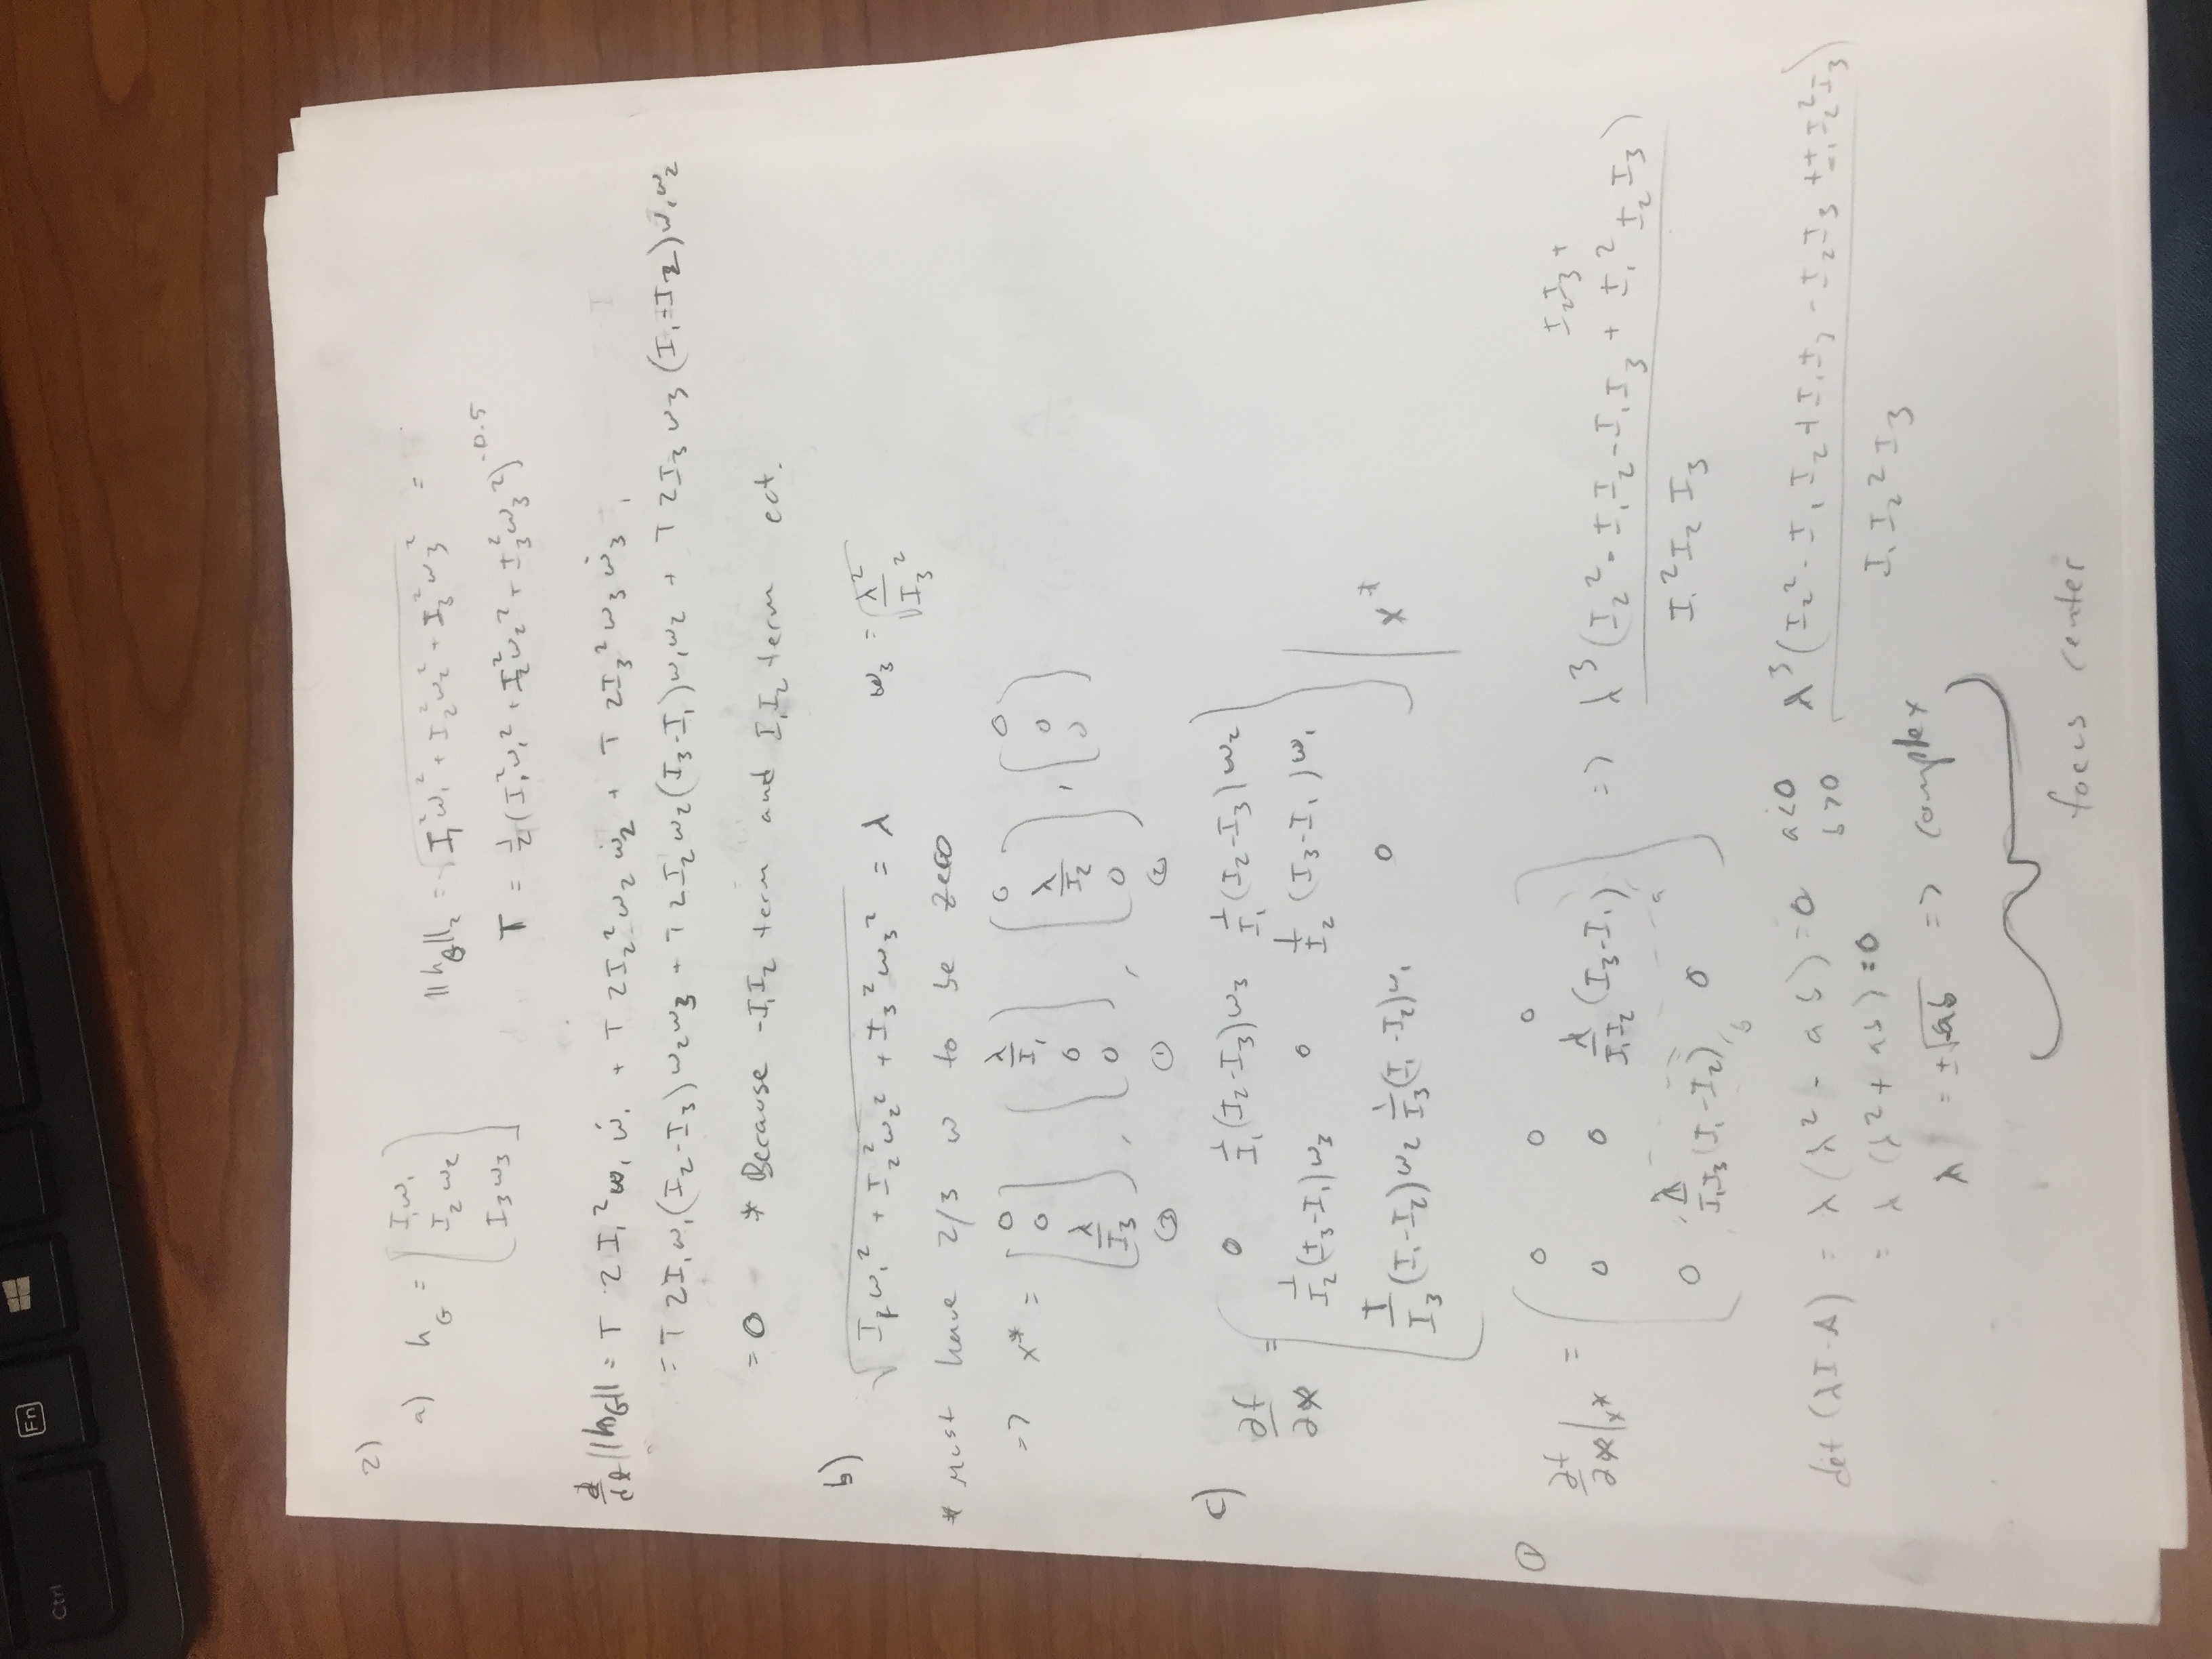 Ctrl
Fn
2)
a) h_G = [I₁ω₁
I₂ω₂
I₃ω₃]
||h_G||₂ = √(I₁²ω₁² + I₂²ω₂² + I₃²ω₃²) =
T = 1/2 (I₁²ω₁² + I₂²ω₂² + I₃²ω₃²)^-0.5
d/dt ||h_G|| = T 2I₁²ω₁ω̇₁ + T 2I₂²ω₂ω̇₂ + T 2I₃²ω₃ω̇₃
= T 2I₁ω₁(I₂-I₃)ω₂ω₃ + T 2I₂ω₂(I₃-I₁)ω₁ω₂ + T 2I₃ω₃(I₁-I₂)ω₁ω₂
= 0 * Because -I₁I₂ term and I₁I₂ term ect.
b)
√(I₁ω₁² + I₂²ω₂² + I₃²ω₃²) = λ ω₃ = √(λ²/I₃²)
* Must have 2/3 ω to be zero
=> x* = [0 0 λ/I₃], [λ/I₁ 0 0], [0 λ/I₂ 0], [0 0 0]
③ ① ②
c)
∂f/∂x = [0 1/I₁(I₂-I₃)ω₃ 1/I₁(I₂-I₃)ω₂
1/I₂(I₃-I₁)ω₃ 0 1/I₂(I₃-I₁)ω₁
1/I₃(I₁-I₂)ω₂ 1/I₃(I₁-I₂)ω₁ 0] | x*
①
∂f/∂x|x* = [0 0 0
0 0 λ/(I₁I₂)(I₃-I₁) a
0 λ/(I₁I₃)(I₁-I₂) b 0]
I₂I₃ +
=> λ³(I₂² - I₁I₂ - I₁I₃ + I₁² I₂I₃)
I₁²I₂I₃
det(λI-A) = λ(λ² - ab) = 0 a<0
b>0
= λ(λ² + ab) = 0
λ = ±√-ab => complex
I₁I₂²I₃
focus center